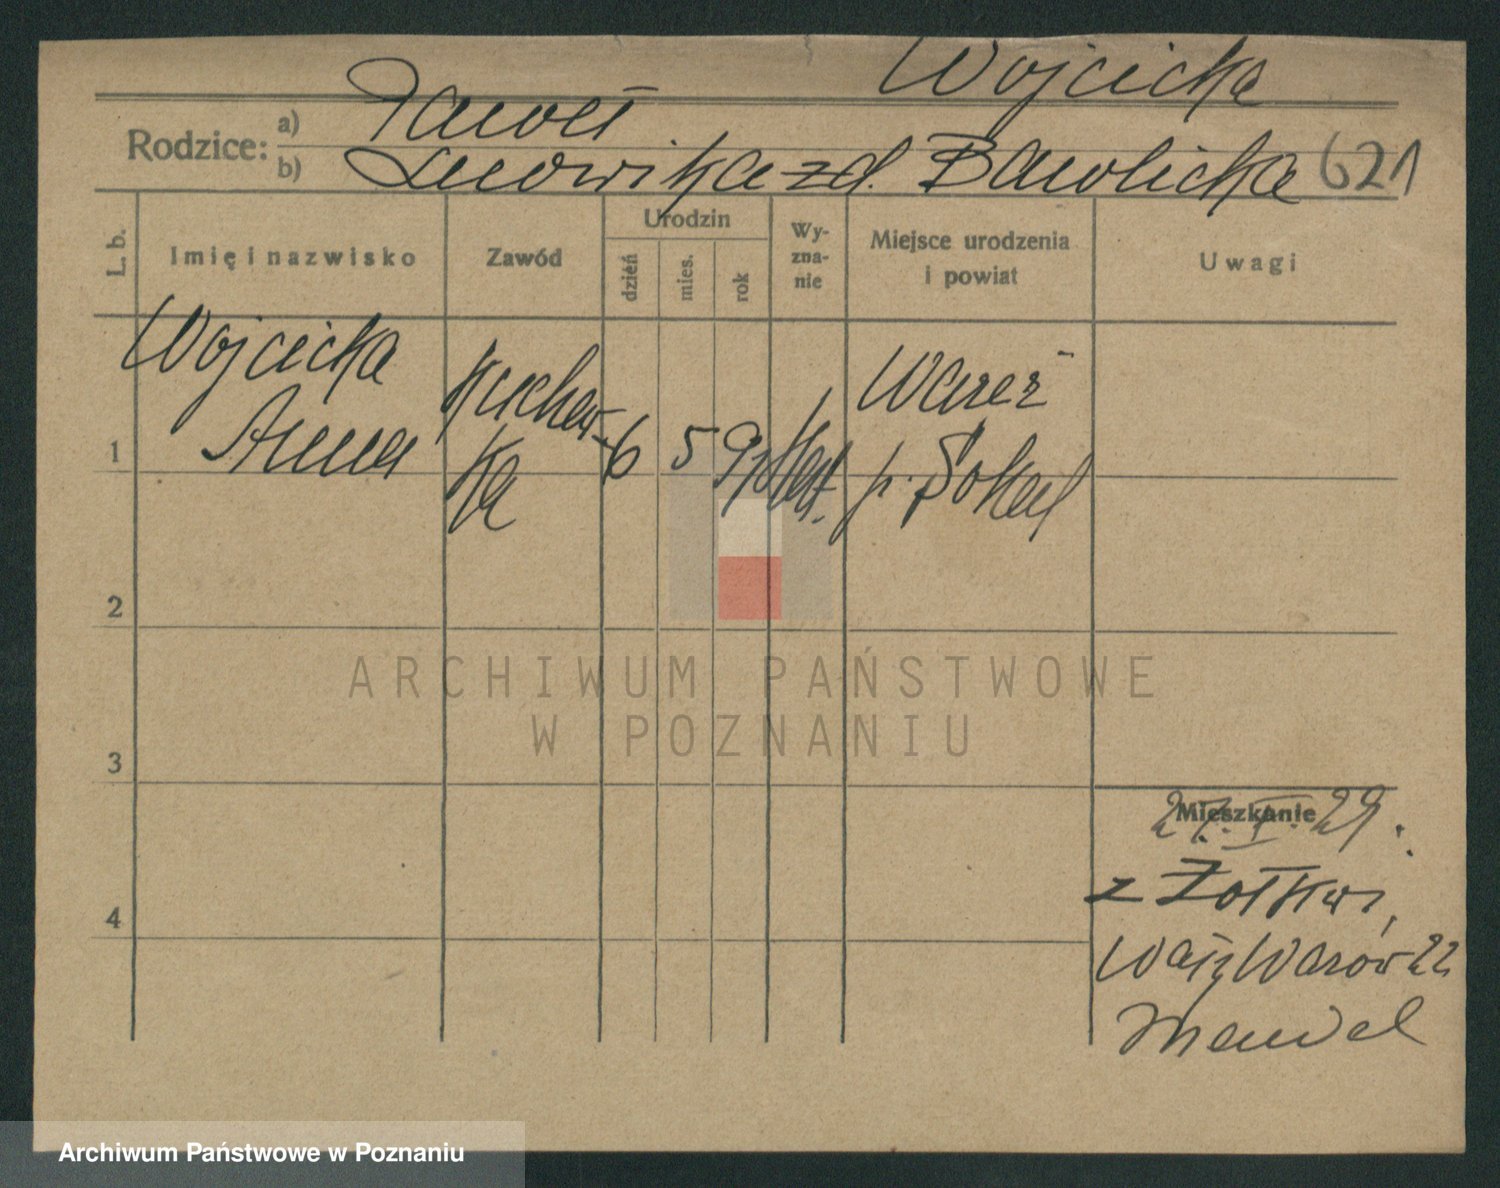 Wojcicka
Rodzice: a) Paweł
b) Ludwika zd. Bawolicka 621
L. b. Imię i nazwisko Zawód Urodzin dzień mies. rok Wy-zna-nie Miejsce urodzenia i powiat Uwagi
1 Wojcicka Anna Kuchar-ka 6 5 p. Sokal
2
3
4
Mieszkanie
29.
z Żółkwi,
Wały Wazów 22
ARCHIWUM PAŃSTWOWE
W POZNANIU
Archiwum Państwowe w Poznaniu